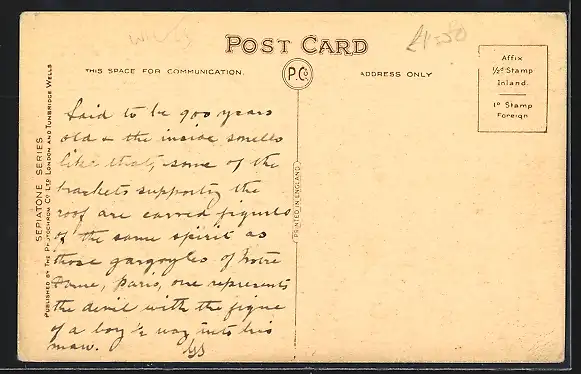 £1=50
POST CARD
THIS SPACE FOR COMMUNICATION.
P.Co
ADDRESS ONLY
Affix
½d Stamp
Inland.
1d Stamp
Foreign
Said to be 900 years
old & the inside smells
like that, some of the
brackets supporting the
roof are carved figures
of the same spirit as
those gargoyles of Notre
Dame, Paris, one represents
the devil with the figure
of a boy ½ way into his
maw.
SEPIATONE SERIES
PUBLISHED BY THE PHOTOCHROM CO LTD LONDON AND TUNBRIDGE WELLS
PRINTED IN ENGLAND